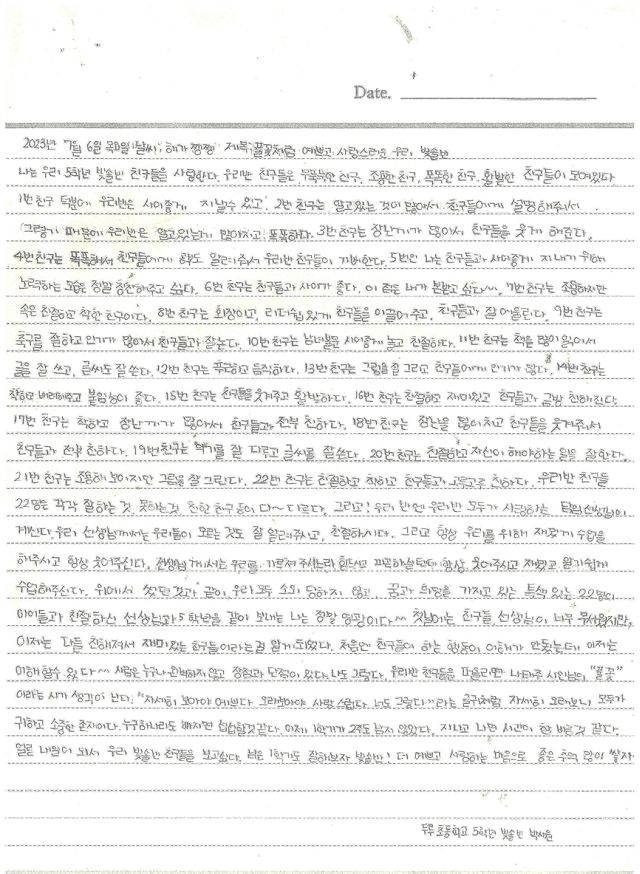 Date.
2023년 7월 6일 목요일 날씨: 해가 쨍쨍 제목: 풀꽃처럼 예쁘고 사랑스러운 우리 빛솔반
나는 우리 5학년 빛솔반 친구들을 사랑한다. 우리반 친구들은, 친구, 조용한 친구, 똑똑한 친구, 활발한 친구들이 모여있다.
1번 친구 덕분에 우리반은 사이좋게 지낼수 있고, 2번 친구는 알고있는 것이 많아서 친구들에게 설명해줘서.
그렇기 때문에 우리반은 알고있는게 많아지고 똑똑하다. 3번 친구는 장난기가 많아서 친구들을 웃게 해준다.
4번 친구는 똑똑해서 친구들에게 알려줘서 우리반 친구들이 기뻐한다. 5번은 나는 친구들과 사이좋게 지내기 위해
노력하는 모습을 정말 칭찬해주고 싶다. 6번 친구는 친구들과 사이가 좋다. 이 점은 내가 본받고 싶다^^. 7번 친구는 조용하지만
속은 친절하고 착한 친구이다. 8번 친구는 회장이고, 리더쉽있게 친구들을 이끌어주고, 친구들과 잘 어울린다. 9번 친구는
축구를 잘하고 인기가 많아서 친구들과 잘논다. 10번 친구는 남녀 사이좋게 놀고 친절하다. 11번 친구는 책을 많이 읽어서
글을 잘 쓰고, 글씨도 잘 쓴다. 12번 친구는 하고 듬직하다. 13번 친구는 그림을 잘 그리고 친구들에게 인기가 많다. 14번 친구는
착하고 배려해주고 붙임성이 좋다. 15번 친구는 친구들을 웃겨주고 활발하다. 16번 친구는 친절하고 재미있고 친구들과 금방 친해진다.
17번 친구는 착하고 장난기가 많아서 친구들과 전부 친하다. 18번 친구는 장난을 많이치고 친구들을 웃겨주셔
친구들과 전부 친하다. 19번 친구는 악기를 잘 다루고 글씨를 잘쓴다. 20번 친구는 친절하고 자신이 해야하는 일을 잘한다.
21번 친구는 조용해 보이지만 그림을 잘 그린다. 22번 친구는 친절하고 착하고 친구들과 고루고루 친하다. 우리반 친구들
22명은 각각 잘 하는 것, 못하는 것 친한 친구 등이 다~ 다르다. 그리고! 우리 반엔 우리반 모두가 사랑하는 선생님이
계신다. 우리 선생님께서는 우리들이 모르는 것도 잘 알려주시고, 친절하시다. 그리고 항상 우리를 위해 재밌게 수업을
해주시고 항상 웃어주신다. 선생님께서는 우리를 가르쳐 주시느라 힘드시고 피곤하실텐데 항상 웃어주시고 재밌고 알기쉽게
수업해주신다. 위에서 썼던것과 같이 우리 모두 소외 당하지 않고 꿈과 희망을 가지고 있는 특색 있는 22명의
아이들과 친절하신 선생님과 5학년을 같이 보내는 나는 정말 영광이다^^ 첫날에는 친구들, 선생님이 너무 무서웠지만,
이제는 다들 친해져서 재미있는 친구들이라는걸 알게되었다. 처음엔 친구들이 하는 행동이 이해가 안됐는데 이제는
이해할수 있다^^ 사람은 누구나 완벽하지 않고 장점과 단점이 있다. 나도 그렇다. 우리반 친구들을 떠올리면 나태주 시인님의 "풀꽃"
이라는 시가 생각이 난다. "자세히 보아야 예쁘다. 오래보아야 사랑스럽다. 너도 그렇다." 라는 글귀처럼 자세히 오래보니 모두가
귀하고 소중한 존재이다. 누구하나라도 빠지면 섭섭할것 같다. 이제 1학기가 2주도 남지 않았다. 지나고 나면 시간이 참 빠른것 같다.
얼른 내일이 되서 우리 빛솔반 친구들을 보고싶다. 남은 1학기도 잘해보자 빛솔반! 더 예쁘고 사랑하는 마음으로 좋은 추억 많이 쌓자
초등학교 5학년 빛솔반